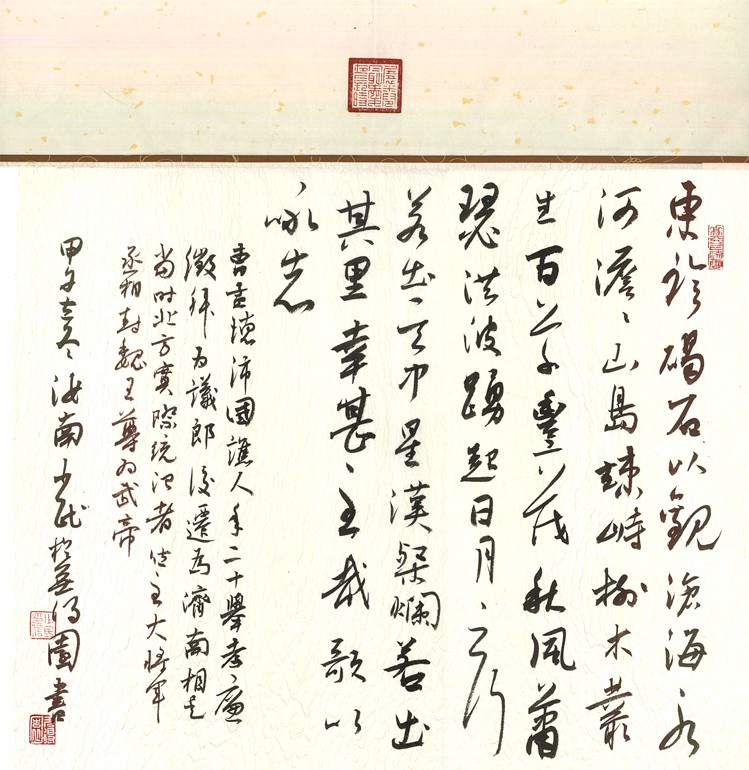 東臨碣石以觀滄海水
河澹澹山島竦峙樹木叢
生百草豐茂秋風蕭
瑟洪波踴起日月之行
若出其中星漢粲爛若出
其里幸甚甚至哉歌以
詠志
曹沛國譙人年二十舉孝廉
徵拜為議郎後遷為濟南相是
當時北方實際統治者位至大將軍
丞相封魏王尊為武帝
甲午汝南少民於無得園書